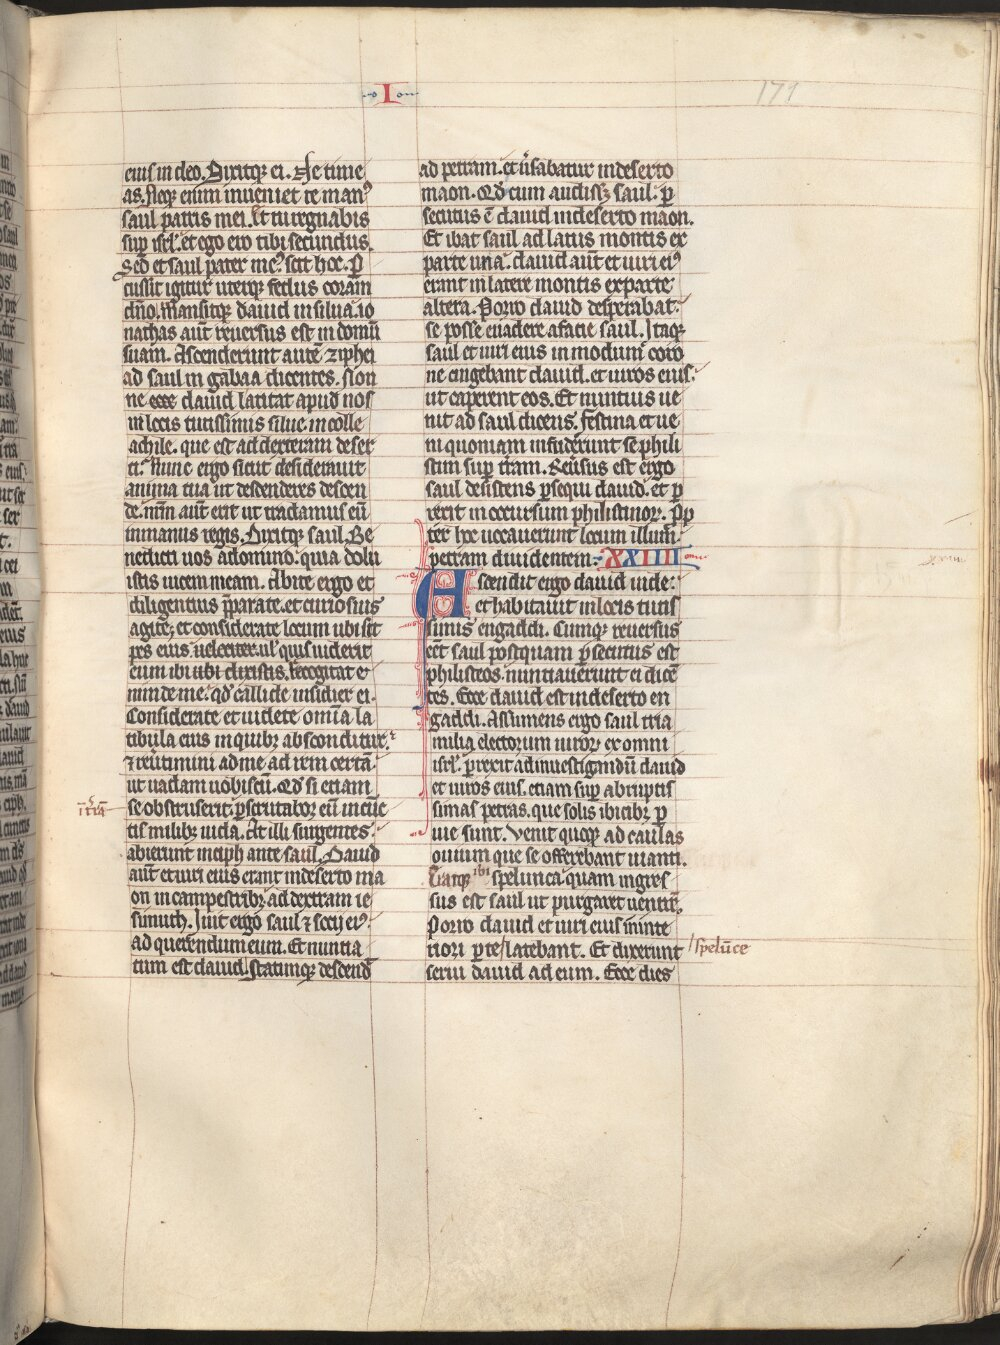 I
171
eius in deo. Dixitq; ei. Ne time
as. Neq; enim inueniet te man⁹
saul patris mei. Et tu regnabis
sup isrl'. et ego ero tibi secundus.
Sed et saul pater me⁹ scit hoc. P̄
cussit igitur uterq; fedus coram
dn̄o. Mansitq; dauid in silua. io
nathas aūt reuersus est in domū
suam. Ascenderunt autē ziphei
ad saul in gabaa dicentes. Non
ne ecce dauid latitat apud nos
in locis tutissimis silue. in colle
achile. que est ad dexteram deser
ti. Nunc ergo sicut desiderauit
anima tua ut descenderes descen
de. nr̄m aūt erit ut tradamus eū
in manus regis. Dixitq; saul. Be
nedicti uos a domino. quia dolu
istis uicem meam. Abite ergo et
diligentius p̄parate. et curiosius
agite; et considerate locum ubi sit
pes eius uelociter. ul' quis uiderit
eum ibi ubi dixistis. Recogitat e
nim de me. qd̄ callide insidier ei.
Considerate et uidete omīa la
tibula eius in quib; absconditur.
⁊ reūtimini ad me ad rem certā.
ut uadam uobiscū. Qd̄ si etiam
se obstruserit. p̄scrutabor eū in cūc
tis milib; iuda. At illi surgentes
abierunt in ciph ante saul. Dauid
aūt et uiri eius erant in deserto ma
on in campestrib; ad dextram ie
simuth. Iuit ergo saul ⁊ socij ei⁹
ad querendum eum. Et nuntia
tum est dauid. Statimq; descend̄
ad petram. et ūsabatur in deserto
maon. Qd̄ cum audiss; saul. p̄
secutus ē dauid in deserto maon.
Et ibat saul ad latus montis ex
parte una. dauid aūt et uiri ei⁹
erant in latere montis ex parte
altera. Porro dauid desperabat
se posse euadere a facie saul. Itaq;
saul et uiri eius in modum coro
ne cingebant dauid. et uiros eius.
ut caperent eos. Et nuntius ue
nit ad saul dicens. festina et ue
ni quoniam infuderunt se phili
stim sup tr̄am. Reūsus est ergo
saul desistens p̄sequi dauid. et p̄
rexit in occursum philistinoꝝ. Pp̄
ter hoc uocauerunt locum illum.
petram diuidentem. XXIIII
Ascendit ergo dauid inde.
et habitauit in locis tutis
simis engaddi. Cumq; reuersus
eēt saul postquam p̄secutus est
philisteos. nuntiauerunt ei dicē
tes. Ecce dauid est in deserto en
gaddi. Assumens ergo saul tria
milia electorum uiroꝝ ex omni
isrl'. p̄rexit ad inuestigandū dauid
et uiros eius. etiam sup abruptis
simas petras. que solis ibicib; p̄
uie sunt. Venit quoq; ad caulas
ouium que se offerebant uianti.
Eratq; ibi spelunca quam ingres
sus est saul ut purgaret uentrē.
Porro dauid et uiri eius in inte
riori p̄te / latebant. Et dixerunt / spelūce
serui dauid ad eum. Ecce dies